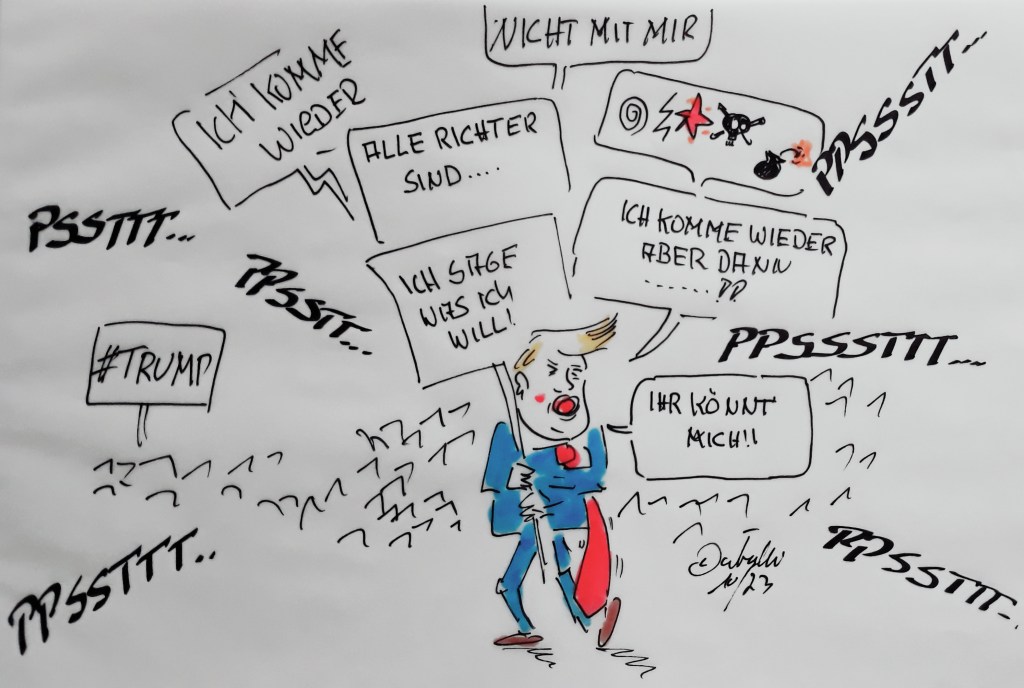 NICHT MIT MIR
ICH KOMME
WIEDER
ALLE RICHTER
SIND....
PPSSSTT...
PSSTTT...
ICH KOMME WIEDER
ABER DANN
PPSSTT...
ICH SAGE
WAS ICH
WILL!
#TRUMP
PPSSSTTT....
IHR KÖNNT
MICH!!
PPSSTTT..
PPSSTTT..
10/23